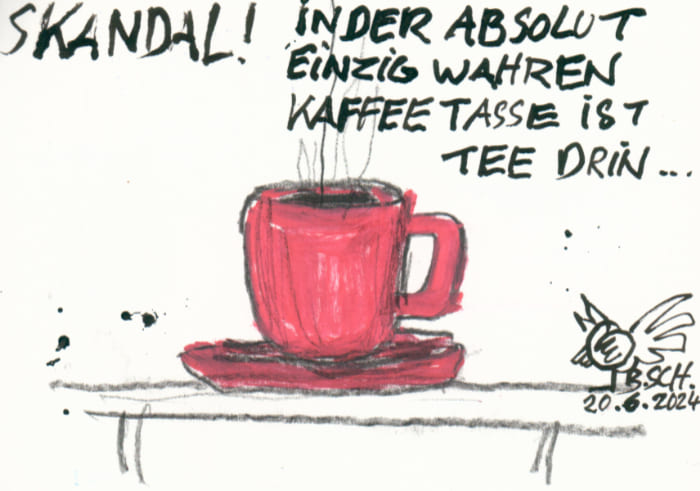 SKANDAL!
INDER ABSOLUT
EINZIG WAHREN
KAFFEETASSE IST
TEE DRIN...
B.SCH.
20.6.2024